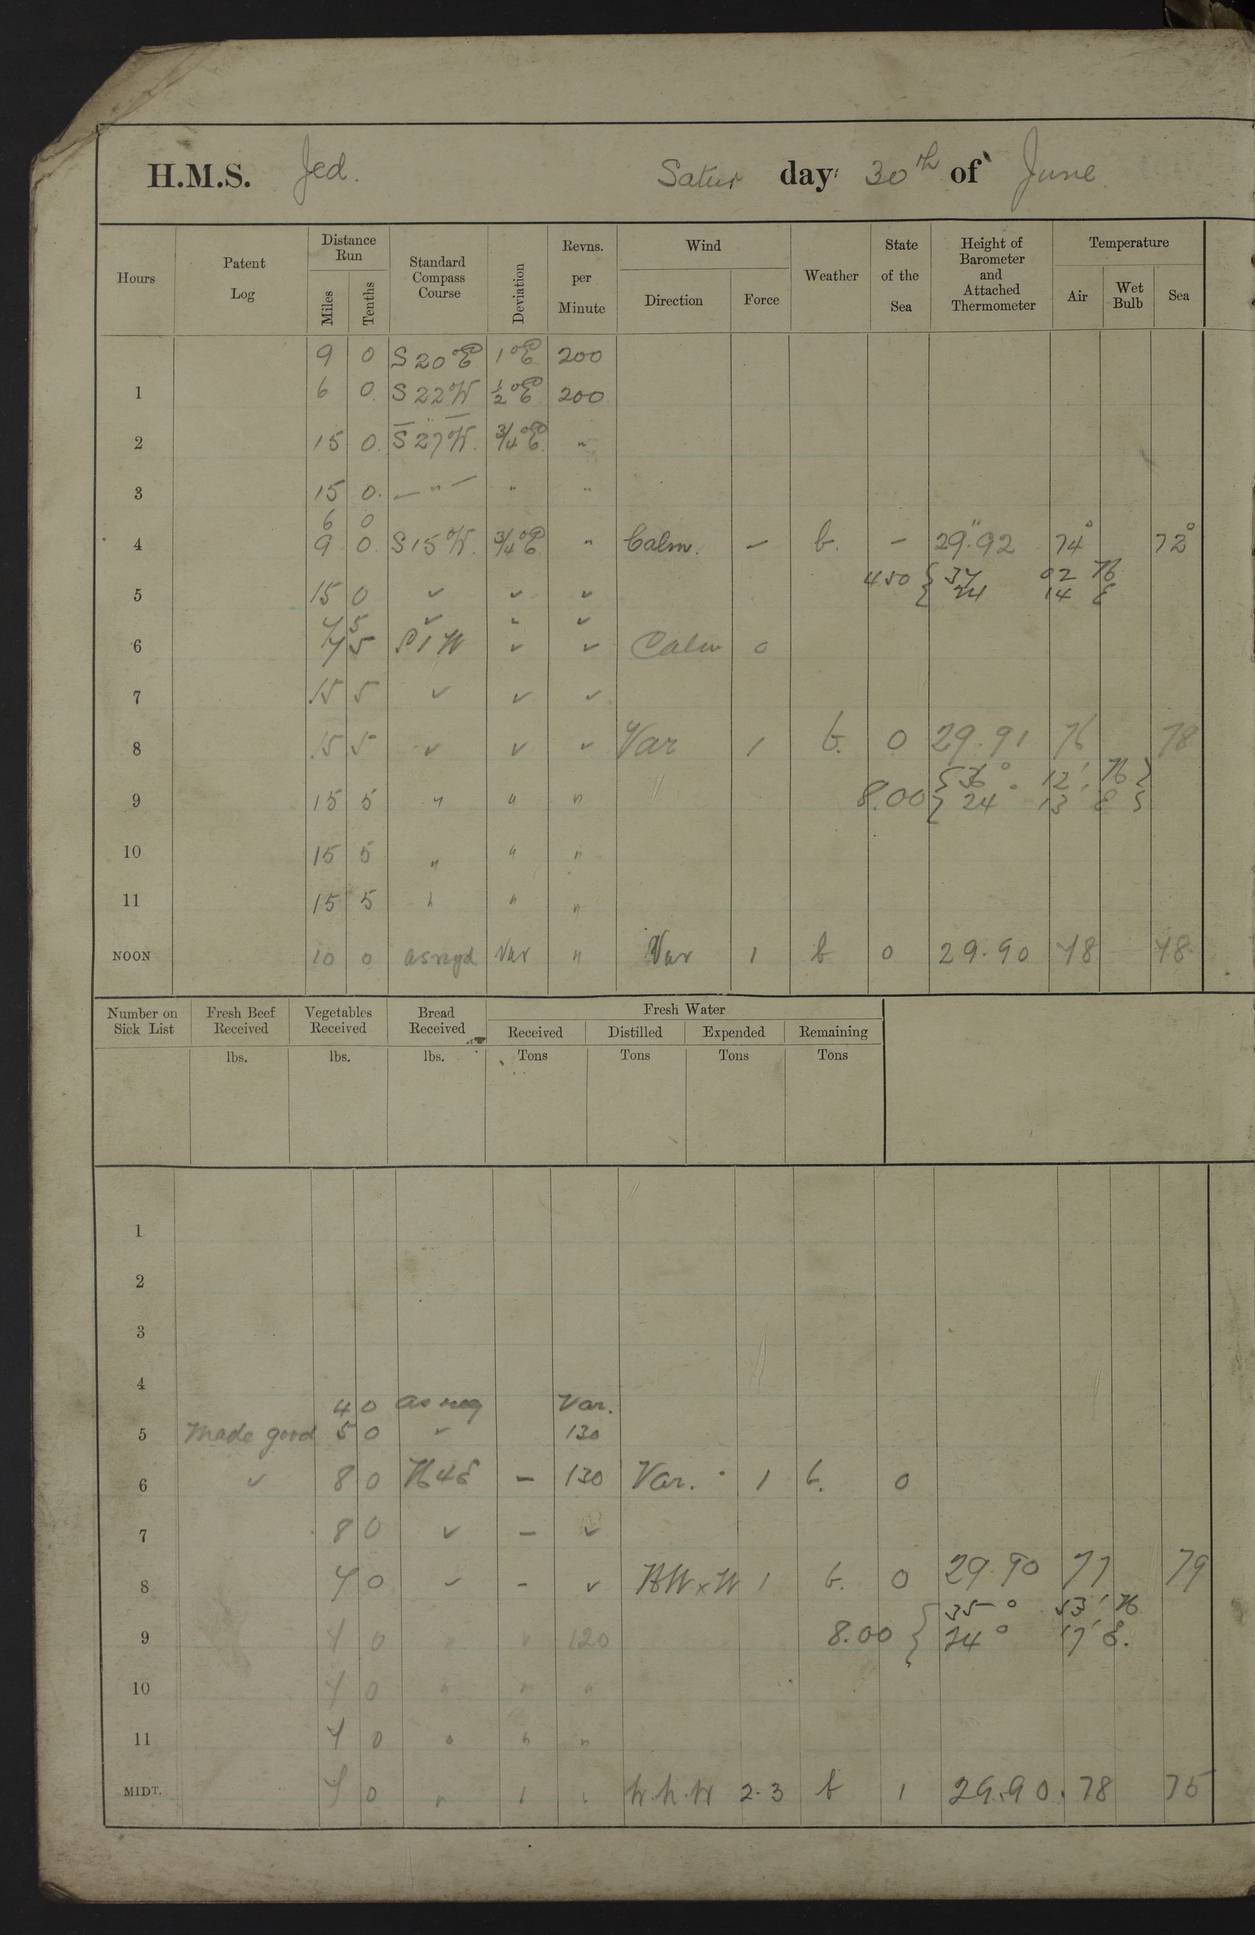 H.M.S. Jed. Satur day 30th of June
Hours Patent Log Distance Run Miles Tenths Standard Compass Course Deviation Revns. per Minute Wind Direction Force Weather State of the Sea Height of Barometer and Attached Thermometer Temperature Air Wet Bulb Sea
9 0 S 20° E 1° E 200
1 6 0 S 22 W ½° E 200
2 15 0 S 27 W ¾° E "
3 15 0 — " — " "
6 0
4 9 0 S 15° W ¾° E " Calm. — b. — 29".92 74° 72°
450 { 37 02 N
5 15 0 ✓ ✓ ✓ 24 14 E
7 5 ✓ " ✓
6 7 5 S 1 W ✓ ✓ Calm 0
7 15 5 ✓ ✓ ✓
8 15 5 ✓ ✓ ✓ Var 1 b. 0 29.91 76 78
8.00 { 36° 12' N }
9 15 5 " " " 24° 13' E
10 15 5 " " "
11 15 5 " " "
NOON 10 0 as reqd Var " Var 1 b 0 29.90 78 78
Number on Sick List Fresh Beef Received Vegetables Received Bread Received Fresh Water
Received Distilled Expended Remaining
lbs. lbs. lbs. Tons Tons Tons Tons
1
2
3
4
4 0 as req Var.
5 Made good 5 0 ✓ 130
6 ✓ 8 0 N 4 E — 130 Var. 1 b. 0
7 8 0 ✓ — ✓
8 7 0 ✓ - ✓ NW x W 1 b. 0 29.90 77 79
8.00 { 35° 53' N
9 7 0 " " 120 24° 17' E.
10 7 0 " " "
11 7 0 " " "
MIDT. 7 0 " " " W.N.W 2.3 b 1 29.90. 78 75